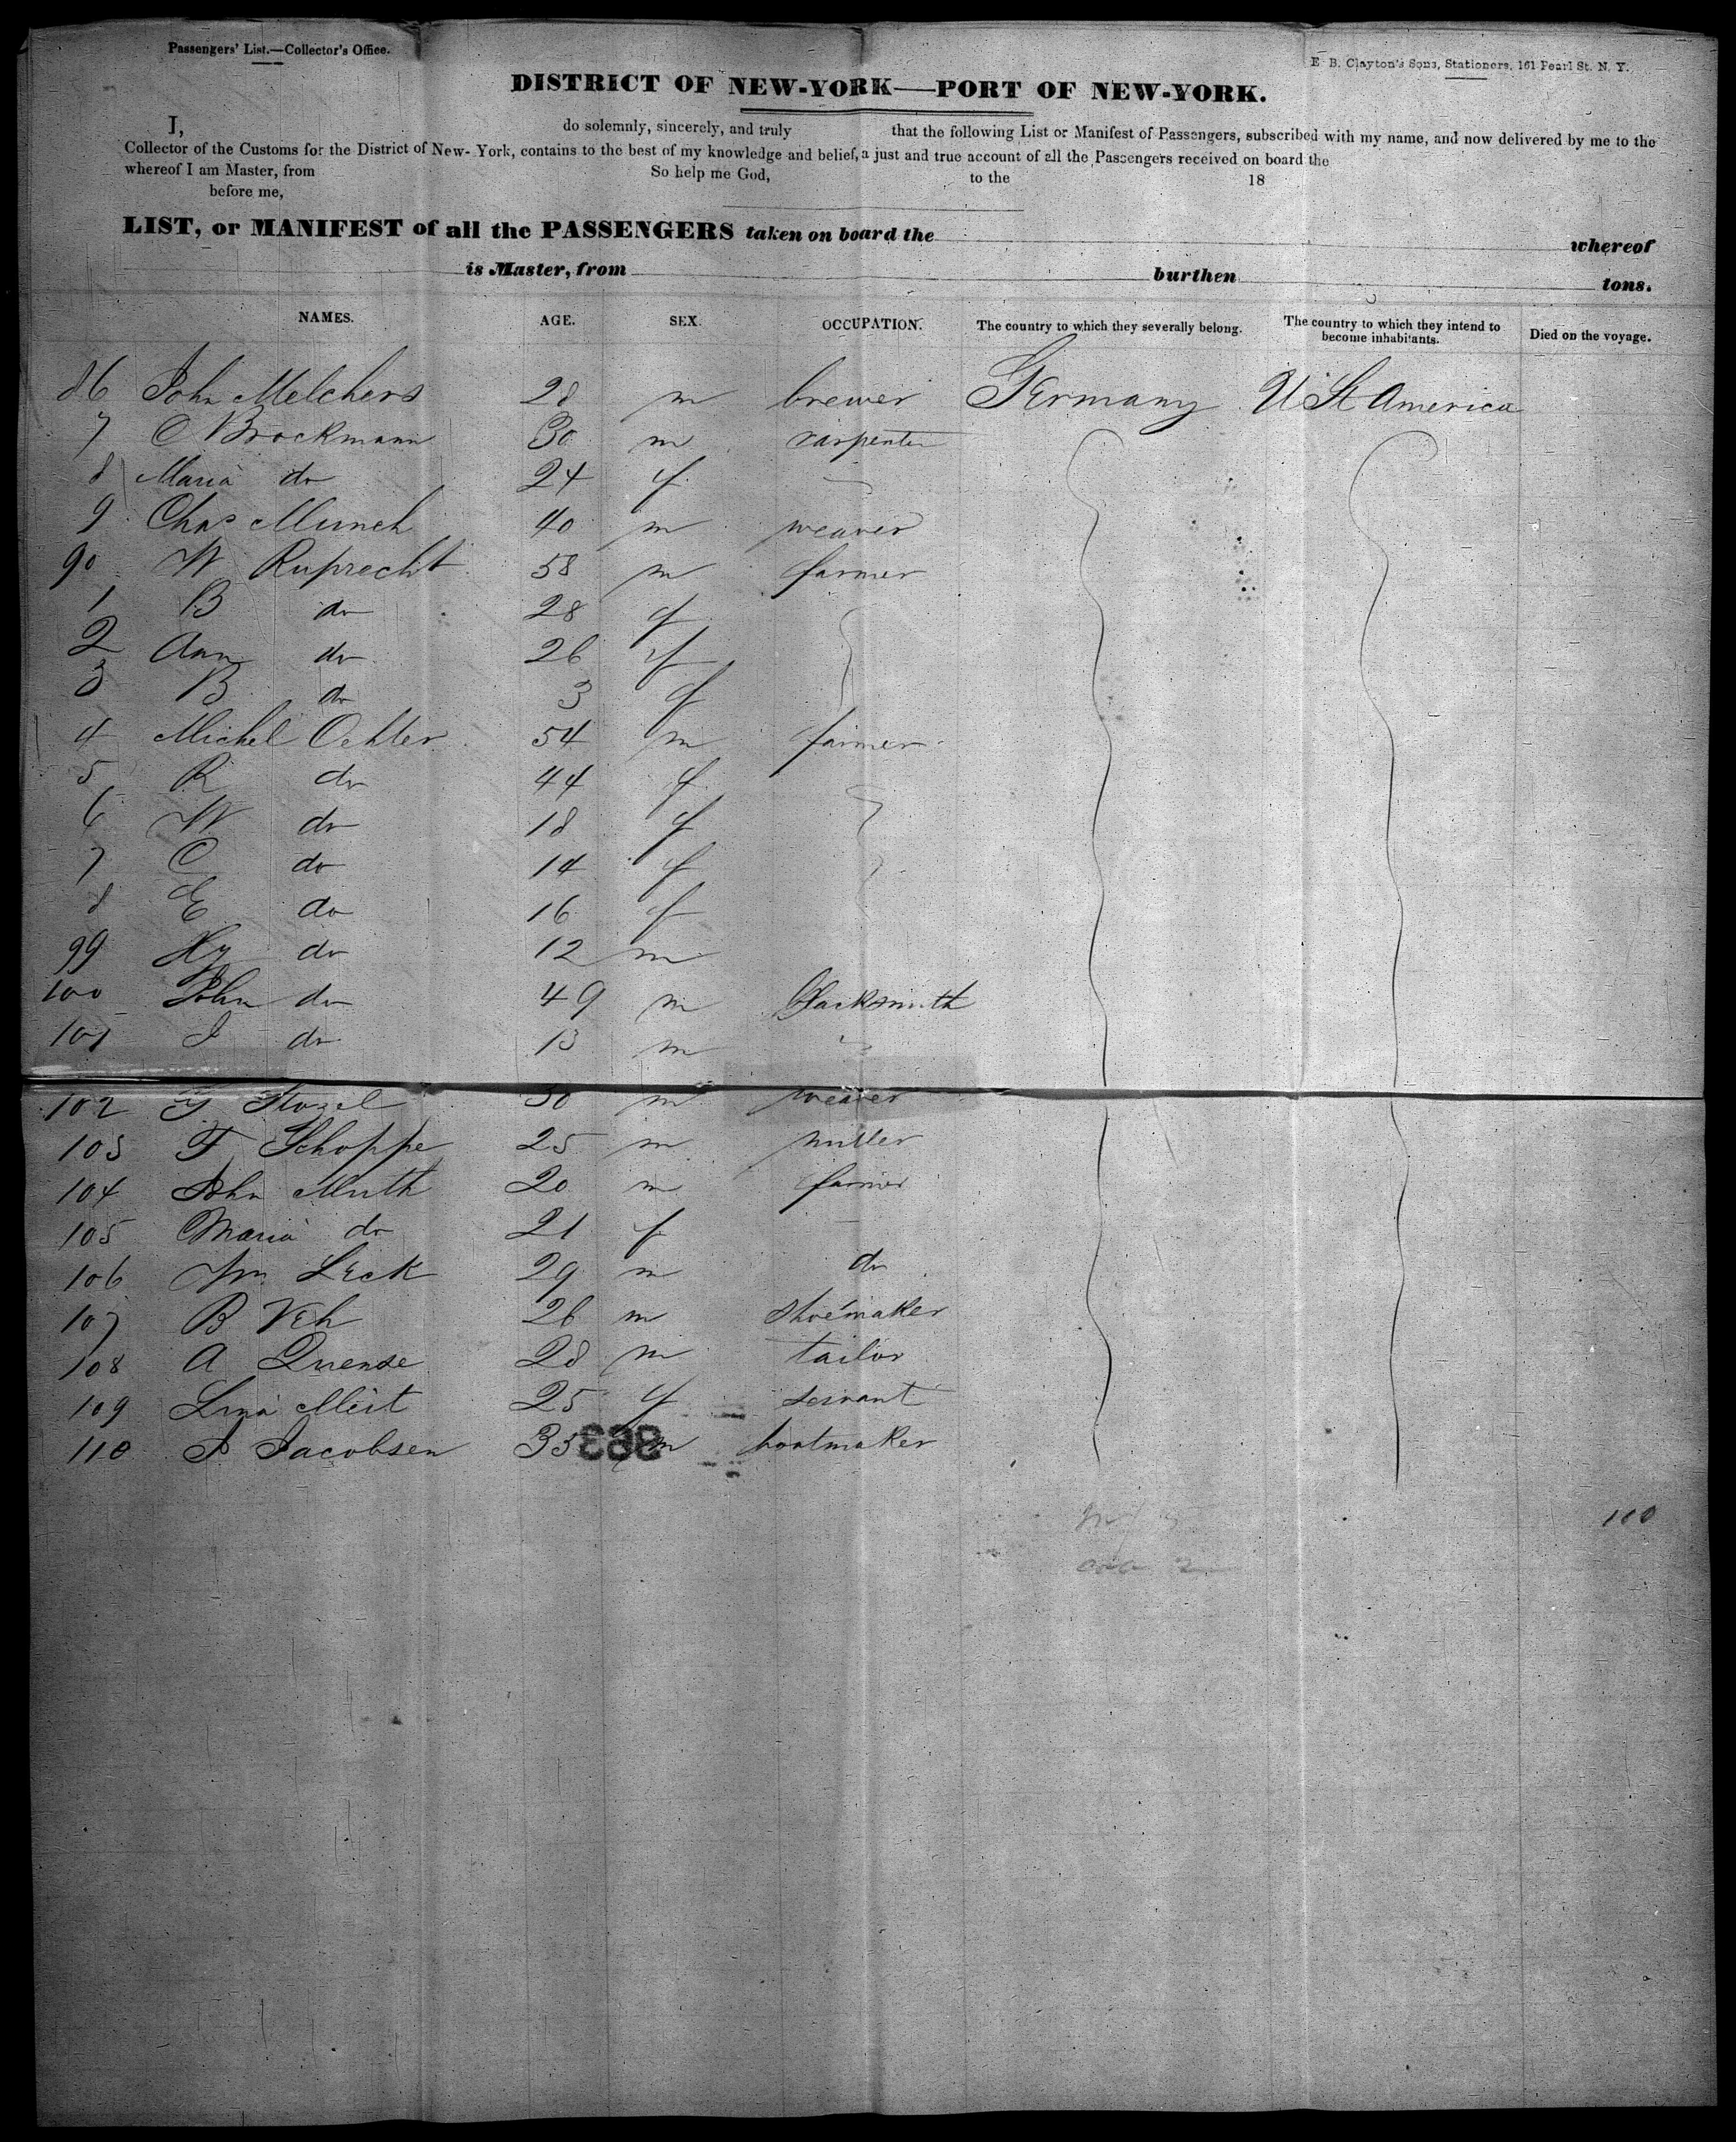 Passengers' List.—Collector's Office.
E. B. Clayton's Sons, Stationers, 161 Pearl St. N. Y.
DISTRICT OF NEW-YORK—PORT OF NEW-YORK.
I, do solemnly, sincerely, and truly that the following List or Manifest of Passengers, subscribed with my name, and now delivered by me to the
Collector of the Customs for the District of New-York, contains to the best of my knowledge and belief, a just and true account of all the Passengers received on board the
whereof I am Master, from So help me God, to the 18
before me,
LIST, or MANIFEST of all the PASSENGERS taken on board the whereof
is Master, from burthen tons.
NAMES. AGE. SEX. OCCUPATION. The country to which they severally belong. The country to which they intend to become inhabitants. Died on the voyage.
86 John Melchers 28 m brewer Germany U St America
7 C Brockmann 30 m carpenter
8 Maria do 24 f
9 Chas Munch 40 m weaver
90 W Ruprecht 58 m farmer
1 B do 28 f
2 Ann do 26 f
3 B do 3 f
4 Michel Oehler 54 m farmer
5 R do 44 f
6 W do 18 f
7 C do 14 f
8 E do 16 f
99 Hy do 12 m
100 John do 49 m blacksmith
101 J do 13 m
102 G 30 m weaver
103 F Schoppe 25 m miller
104 John Muth 20 m farmer
105 Maria do 21 f
106 Wm Leck 29 m do
107 B Veh 26 m shoemaker
108 A Quense 28 m tailor
109 Lina Meit 25 f servant
110 J Jacobsen 33 m bootmaker
110